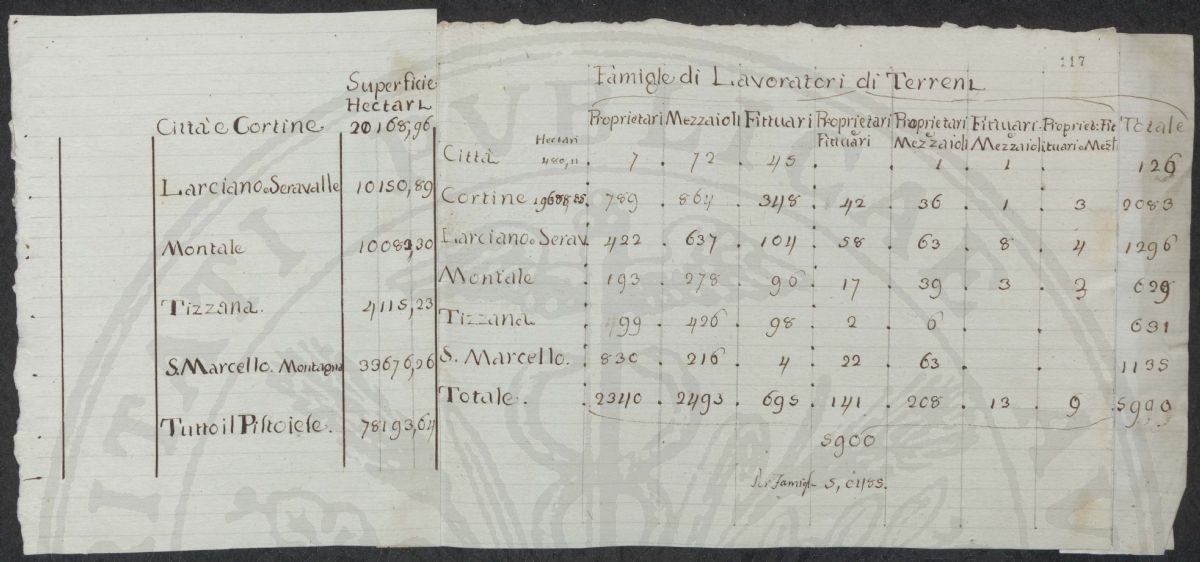 117
Superficie
Hectari
Città e Cortine 20168,96
Larciano o Seravalle 10150,89
Montale 10082,30
Tizzana. 4115,23
S. Marcello. Montagna 33676,26
Tutto il Pistoiese. 78193,64
Famigle di Lavoratori di Terreni
Proprietari Mezzaioli Fittuari Proprietari Fittuari Proprietari e Mezzaioli Fittuari e Mezzaioli Propriet: Fittuari e Mezli Totale
Hectari
Città 480,11 . 7 . 72 . 45 . . 1 . 1 . 126
Cortine 19688,85. 789 . 864 . 348 . 42 . 36 . 1 . 3 2083
Larciano o Serav. 422 . 637 . 104 . 58 . 63 . 8 . 4 1296
Montale 193 . 278 . 96 . 17 . 39 . 3 . 3 629
Tizzana 99 . 426 . 98 . 2 . 6 . . 631
S. Marcello. 830 . 216 . 4 . 22 . 63 . . 1135
Totale. 2340 . 2493 . 695 . 141 . 208 . 13 . 9 . 5900
5900